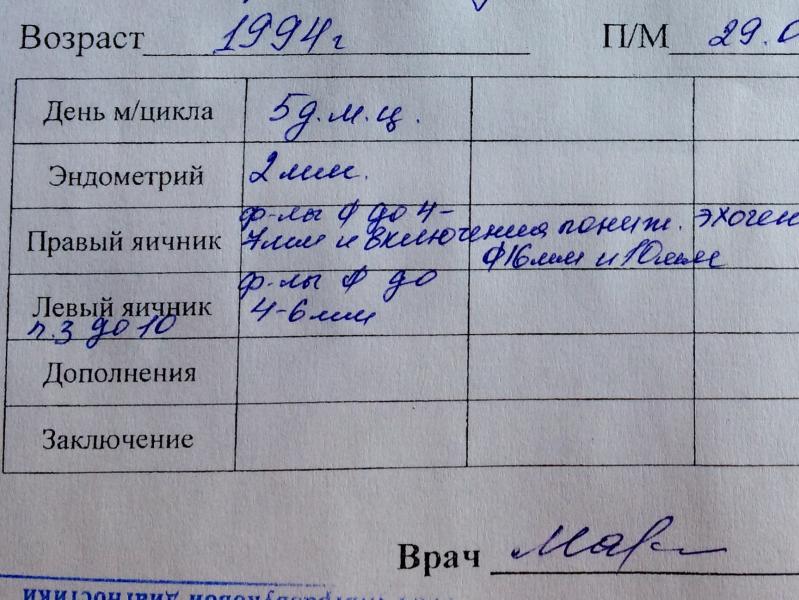 Возраст 1994г П/М 29.0
День м/цикла 5 д.м.ц.
Эндометрий 2 мм.
Правый яичник ф-лы ϕ до 4-
7мм и включения пониж. эхоген
ϕ16мм и 10мм
Левый яичник ф-лы ϕ до
п.з до 10 4-6мм
Дополнения
Заключение
Врач